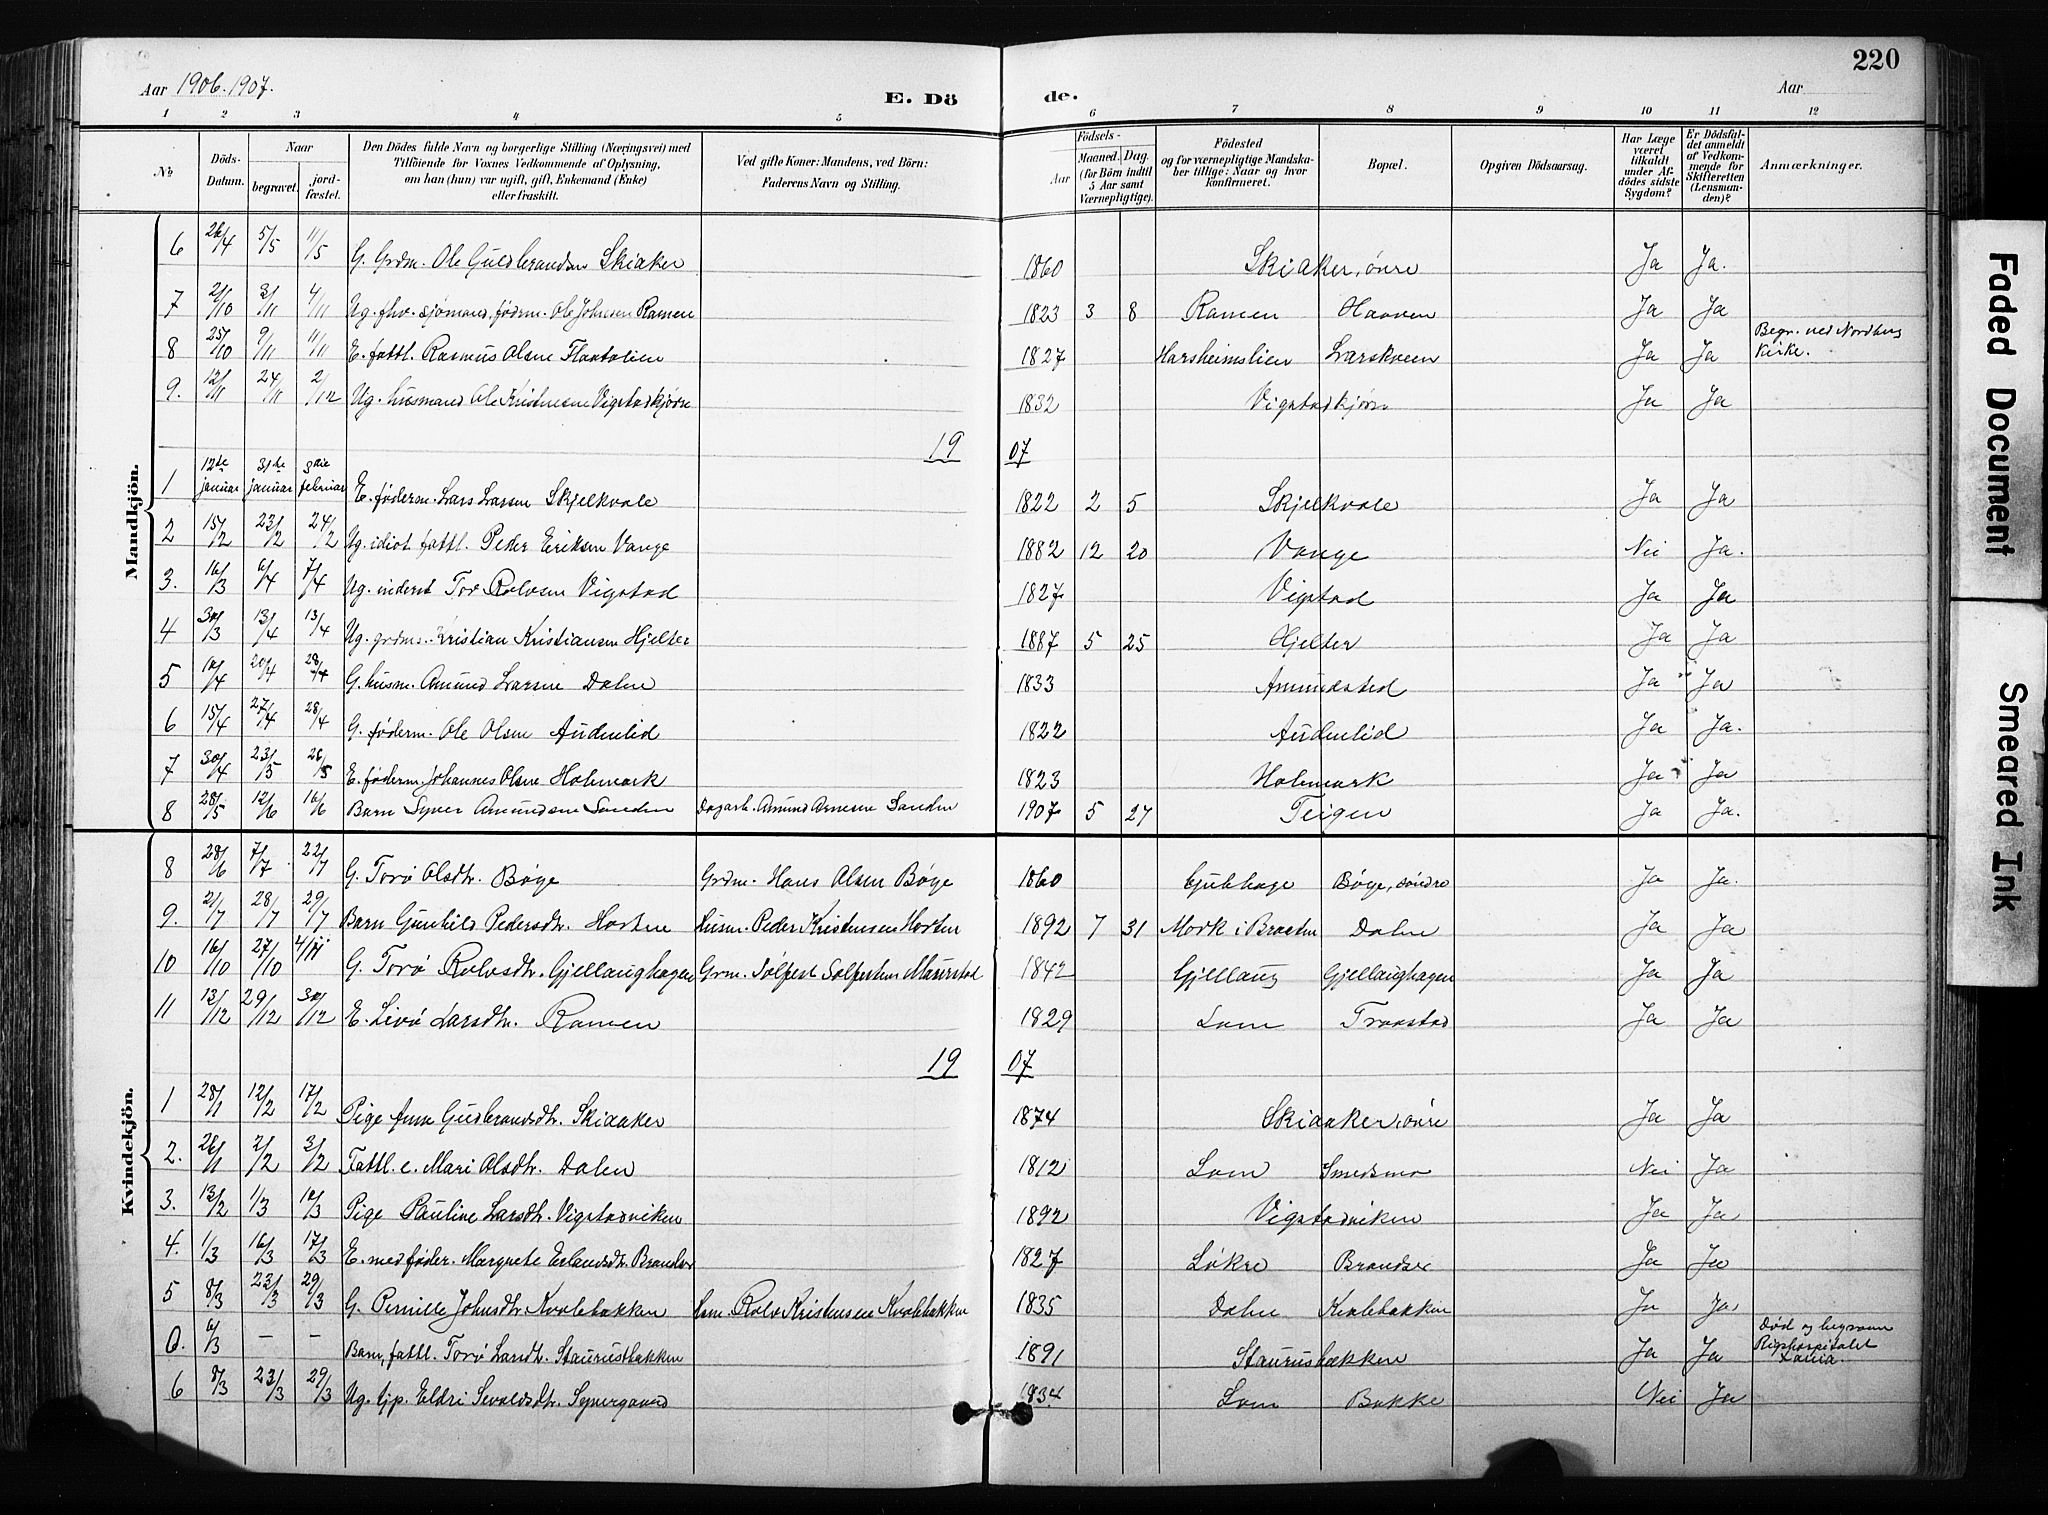 220
Aar 1906-1907.
E. Dö de.
Aar
1 2 3 4 5 6 7 8 9 10 11 12
No
Döds-Datum.
Naar begravet. jordfæstet.
Den Dödes fulde Navn og borgerlige Stilling (Næringsvei) med Tilföiende for Voxnes Vedkommende af Oplysning, om han (hun) var ugift, gift, Enkemand (Enke) eller fraskilt.
Ved gifte Koner: Mandens, ved Börn: Faderens Navn og Stilling.
Födsels-
Aar Maaned. Dag. (for Börn indtil 5 Aar samt Værnepligtige).
Födested og for værnepligtige Mandskaber tillige: Naar og hvor konfirmeret.
Bopæl.
Opgiven Dödsaarsag.
Har Læge været tilkaldt under Afdödes sidste Sygdom?
Er Dödsfaldet anmeldt af Vedkommende for Skifteretten (Lensmanden)?
Anmærkninger.
Mandkjön.
6 26/4 5/5 11/5 G. Grdm. Ole Guldbrandsen Skiaker 1860 Skiaker, övre Ja Ja.
7 2/10 3/11 4/11 Ug. fhv. sjømand, fødrm. Ole Johnsen Ramen 1823 3 8 Ramen Haaven Ja Ja
8 25/10 9/11 11/11 E. fattl. Rasmus Olsen Flaatolien 1827 Harsheimslien Larskveen Ja Ja Begr. ved Nordbergs Kirke.
9. 12/11 24/11 2/12 Ug. husmand Ole Kristensen Vigstadkjøsn 1832 Vigstadkjøsn Ja Ja
19 07
1 12te januar 31te januar 3die februar E. føderm. Lars Larsen Skjelkvale 1822 2 5 Skjelkvale Ja Ja
2 15/2 23/2 24/2 Ug. idiot fattl. Peder Eriksen Vange 1882 12 20 Vange Nei Ja.
3. 16/3 6/4 7/4 Ug. inderst Tor Rolvsen Vigstad 1827 Vigstad Ja Ja
4 30/3 13/4 13/4 Ug. grdms. Kristian Kristiansen Hjelter 1887 5 25 Hjelter Ja Ja
5 10/4 20/4 28/4 G. husm. Amund Larsen Dalen 1833 Amundstad Ja Ja
6 15/4 27/4 28/4 G. føderm. Ole Olsen Audenlid 1822 Audenlid Ja Ja.
7 30/4 23/5 26/5 E. føderm. Johannes Olsen Holemark 1823 Holemark Ja Ja
8 28/5 12/6 16/6 Barn Syver Amundsen Sanden Dagarb. Amund Arnesen Sanden 1907 5 27 Teigen Ja Ja.
Kvindekjön.
8 28/6 7/7 22/7 G. Torö Olsdtr. Böye Grdm. Hans Olsen Böye 1860 Böye, söndre Ja Ja.
9. 21/7 28/7 29/7 Barn Gunhild Pedersdtr. Horten Husm. Peder Kristensen Horten 1892 7 31 Mork i Dalen Ja Ja
10 16/10 27/10 4/11 G. Torö Rolvsdtr. Gjellaughagen Grm. Sölfest Sölfestsen Maurstad 1842 Gjellaug Gjellaughagen Ja Ja
11 13/12 29/12 30/12 E. Livö Larsdtr. Ramen 1829 Lom Traastad Ja Ja
19 07
1 28/1 12/2 17/2 Pige Anna Gudbrandsdtr. Skiaaker 1874 Skiaaker, övre Ja Ja
2. 26/1 2/2 3/2 Fattl. e. Mari Olsdtr. Dalen 1812 Lom Smedsmo Nei Ja
3. 13/2 1/3 10/3 Pige Pauline Larsdtr. Vigstadviken 1892 Vigstadviken Ja Ja
4. 1/3 16/3 17/3 E. med føder. Margrete Erlandsdtr. Brandse 1827 Løkre Brandse Ja Ja
5 8/3 23/3 29/3 G. Pernille Johnsdtr. Kvalebakken Hsm. Rolv Kristensen Kvalebakken 1835 Dalen Kvalebakken Ja Ja
0. 6/3 - - Barn, fattl. Torö Larsdtr. Staurustbakken 1891 Staurusbakken Ja Ja Död og begraven Rigshospitalet
6 8/3 23/3 29/3 Ug. tjp. Eldri Sevaldsdtr. Synergaard 1834 Lom Bakke Nei Ja
Faded Document
Smeared Ink